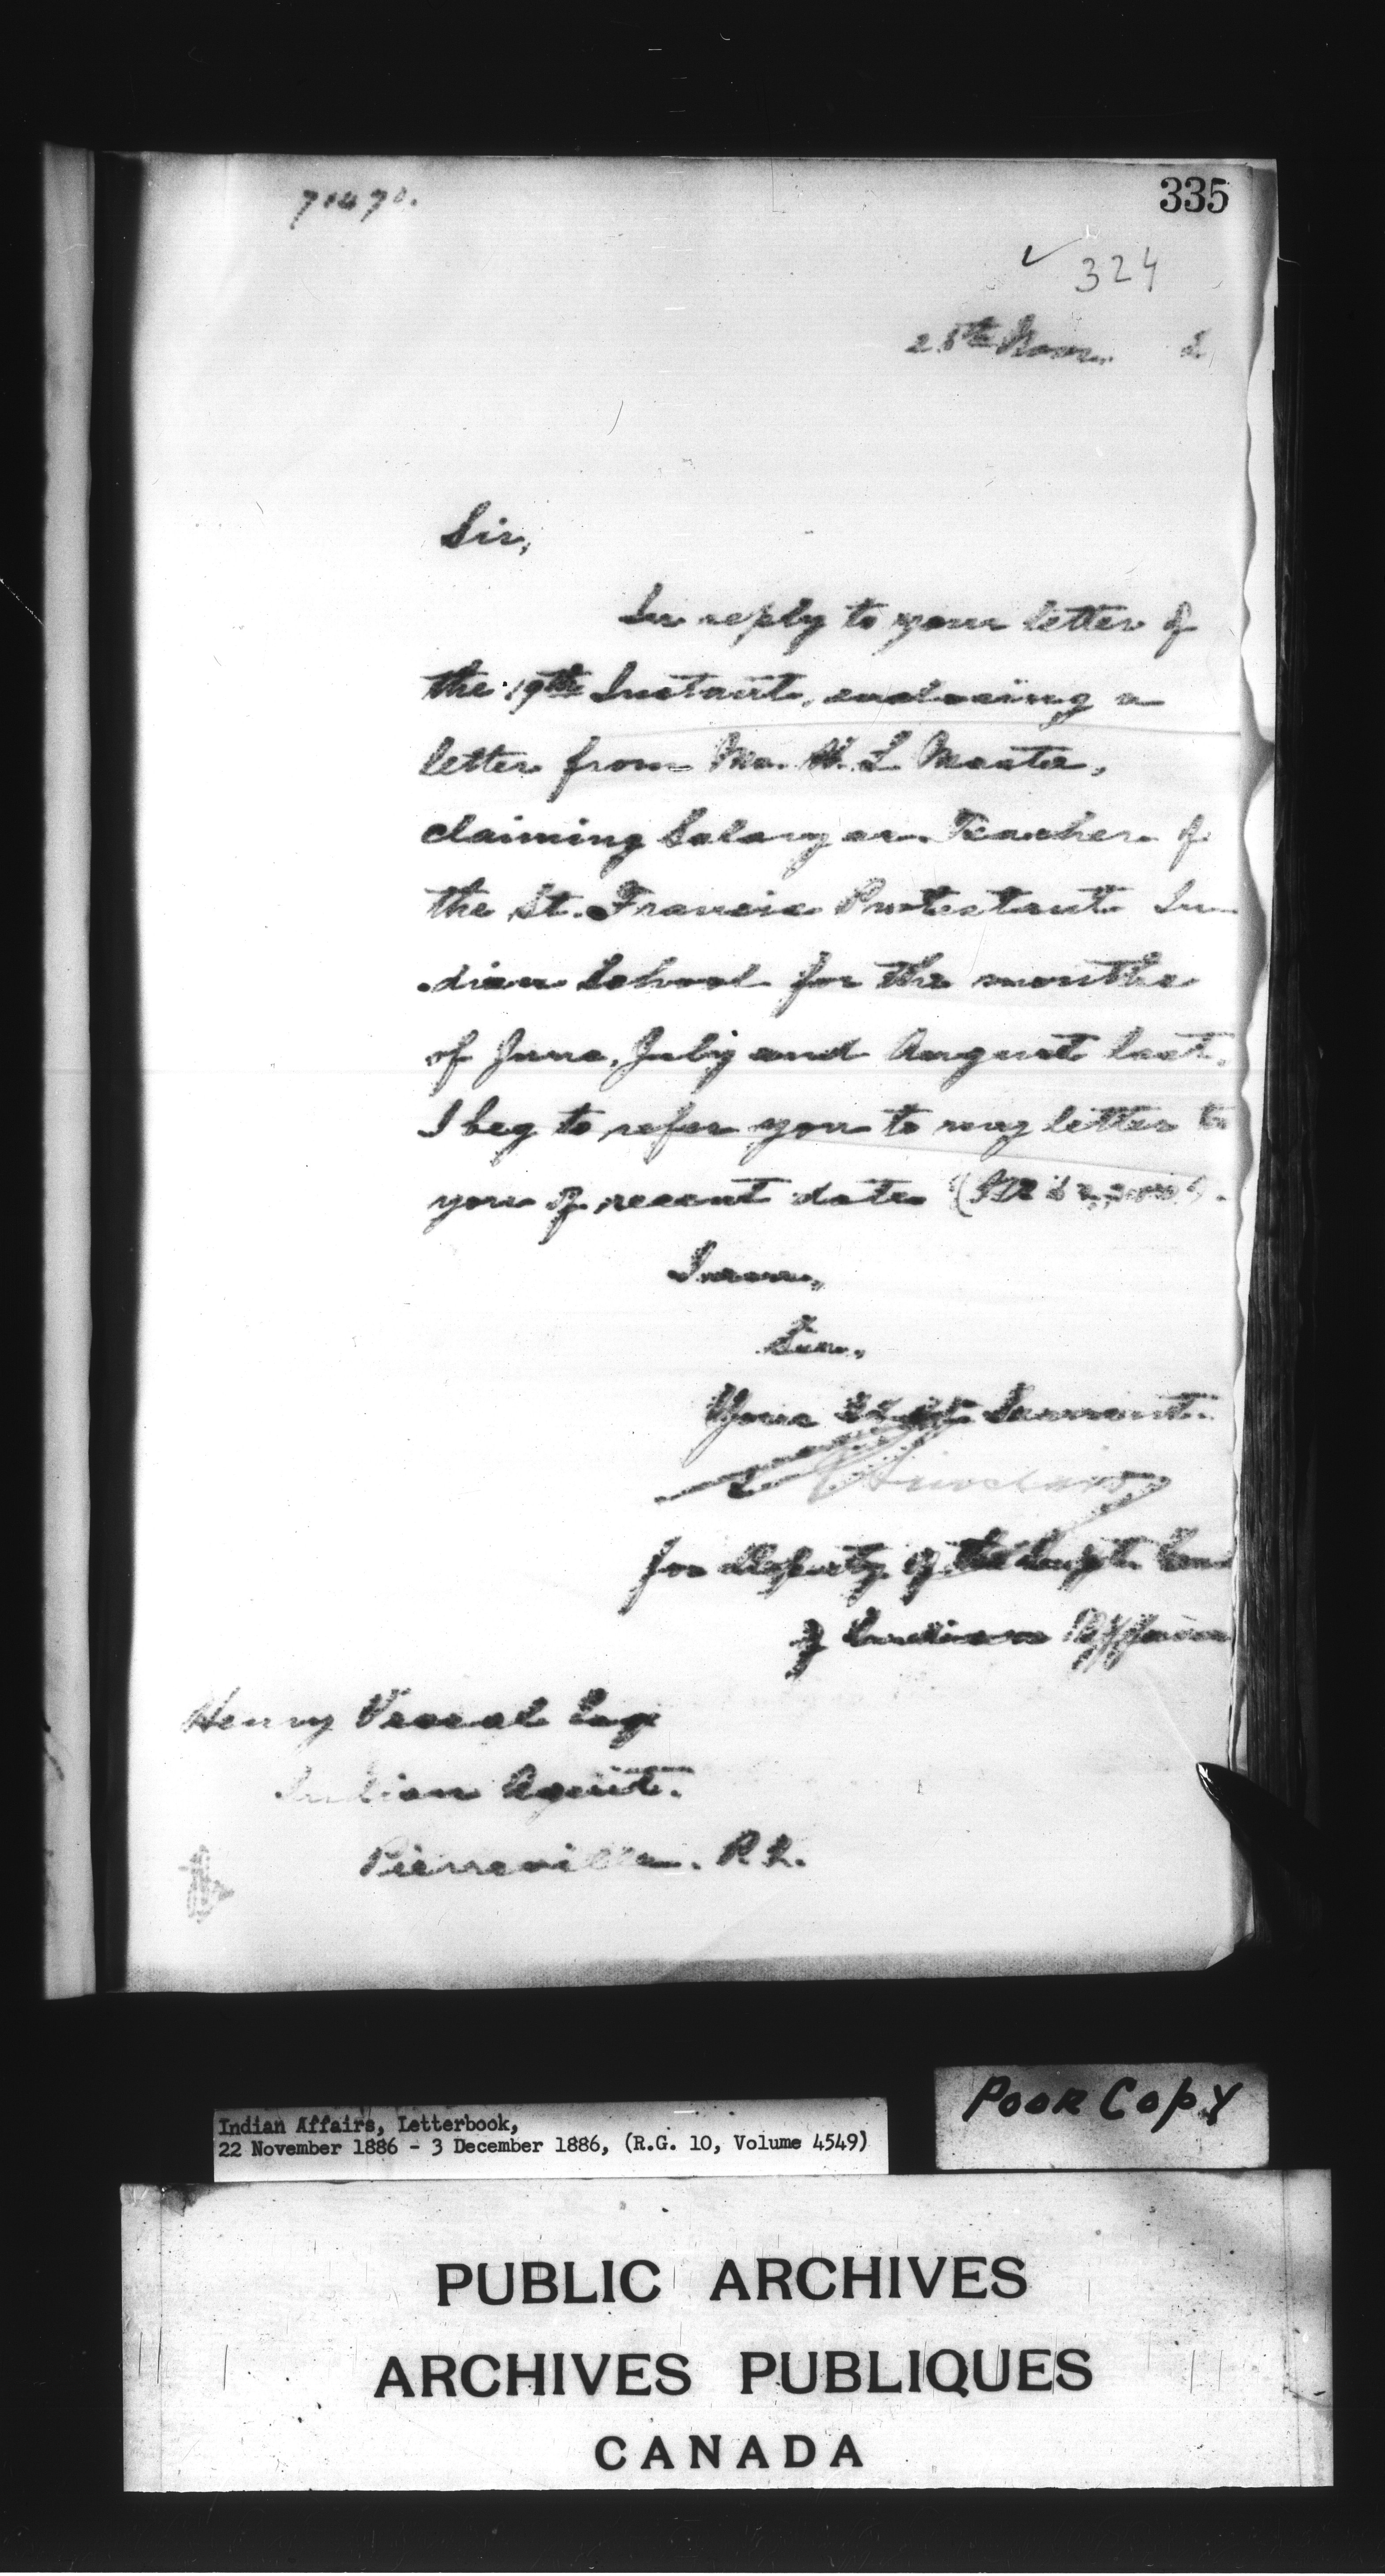 71470.
335
✓ 324
25th Novr.
Sir,
In reply to your letter of
the 19th Instant, enclosing a
letter from Mr. H. L Masta,
claiming Salary as Teacher of
the St. Francis Protestant In
dian School for the months
of June, July and August last.
I beg to refer you to my letter to
you of recent date
I am,
Sir,
Your Servant.
Sinclair
for Deputy of the Supt. Gen
of Indian Affairs
Henry Vassal Esq
Indian Agent.
Pierreville. P.Q.
Poor Copy
Indian Affairs, Letterbook,
22 November 1886 - 3 December 1886, (R.G. 10, Volume 4549)
PUBLIC ARCHIVES
ARCHIVES PUBLIQUES
CANADA